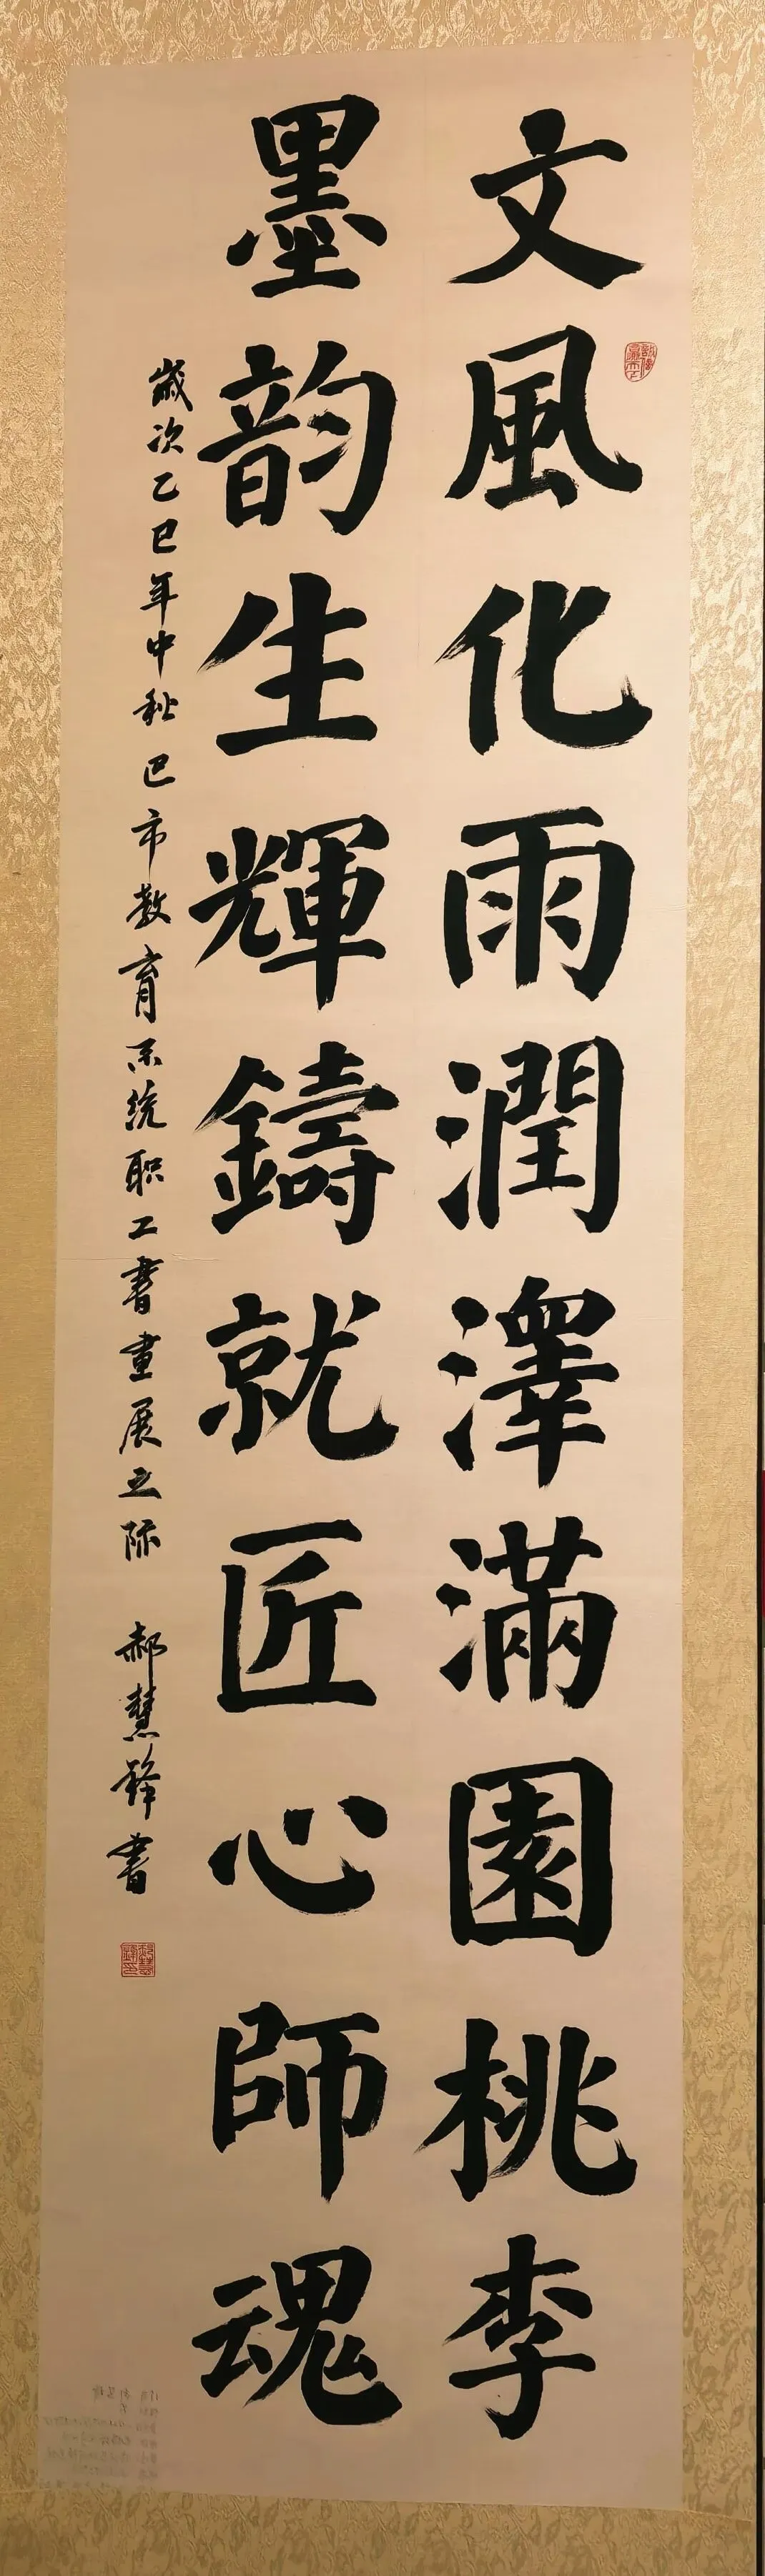 文風化雨潤澤滿園桃李
墨韵生輝鑄就匠心師魂
歲次乙巳年中秋巴市教育系统职工書畫展之际 郝慧鋒書